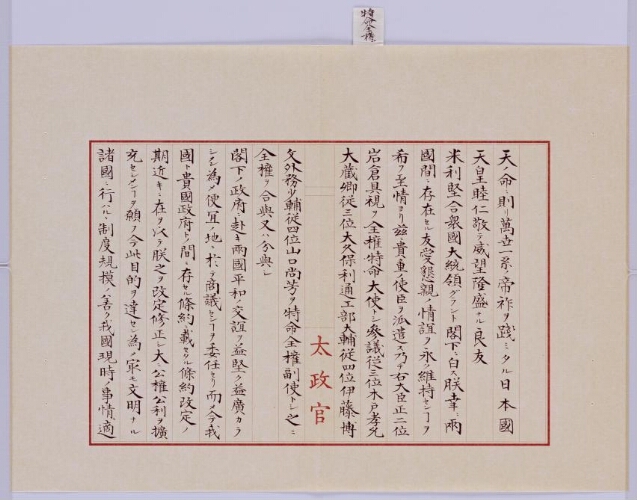 特命全権
天ノ命ニ則リ萬世一系ノ帝祚ヲ踐ミタル日本國
天皇睦仁敬テ威望隆盛ナル良友
米利堅合衆國大統領グラント閣下ニ白ス朕幸ニ兩
國間ニ存在セル友愛懇親ノ情誼ヲ永ク維持センヿヲ
希フ至情ヨリ茲ニ貴重ノ使臣ヲ派遣ス乃チ右大臣正二位
岩倉具視ヲ全權特命大使トシ參議從三位木戸孝允
大藏卿從三位大久保利通工部大輔從四位伊藤博
太政官
文外務少輔從四位山口尚芳ヲ特命全權副使トシ之ニ
全權ヲ合與又ハ分與シ
閣下ノ政府ニ赴キ兩國平和ノ交誼ヲ益堅ク益廣カラ
シメン為メ便宜ノ地ニ於テ商議センヿヲ委任セリ而〆今我
國ト貴國政府トノ間ニ存セル條約ニ載セタル條約改定ノ
期近キニ在ルヲ以テ朕之ヲ改定修正シ大ニ公權公利ヲ擴
充センヿヲ願フ今此目的ヲ達セン為メ冣モ文明ナル
諸國ニ行ハルヽ制度規模ノ善ク我國現時ノ事情ニ適